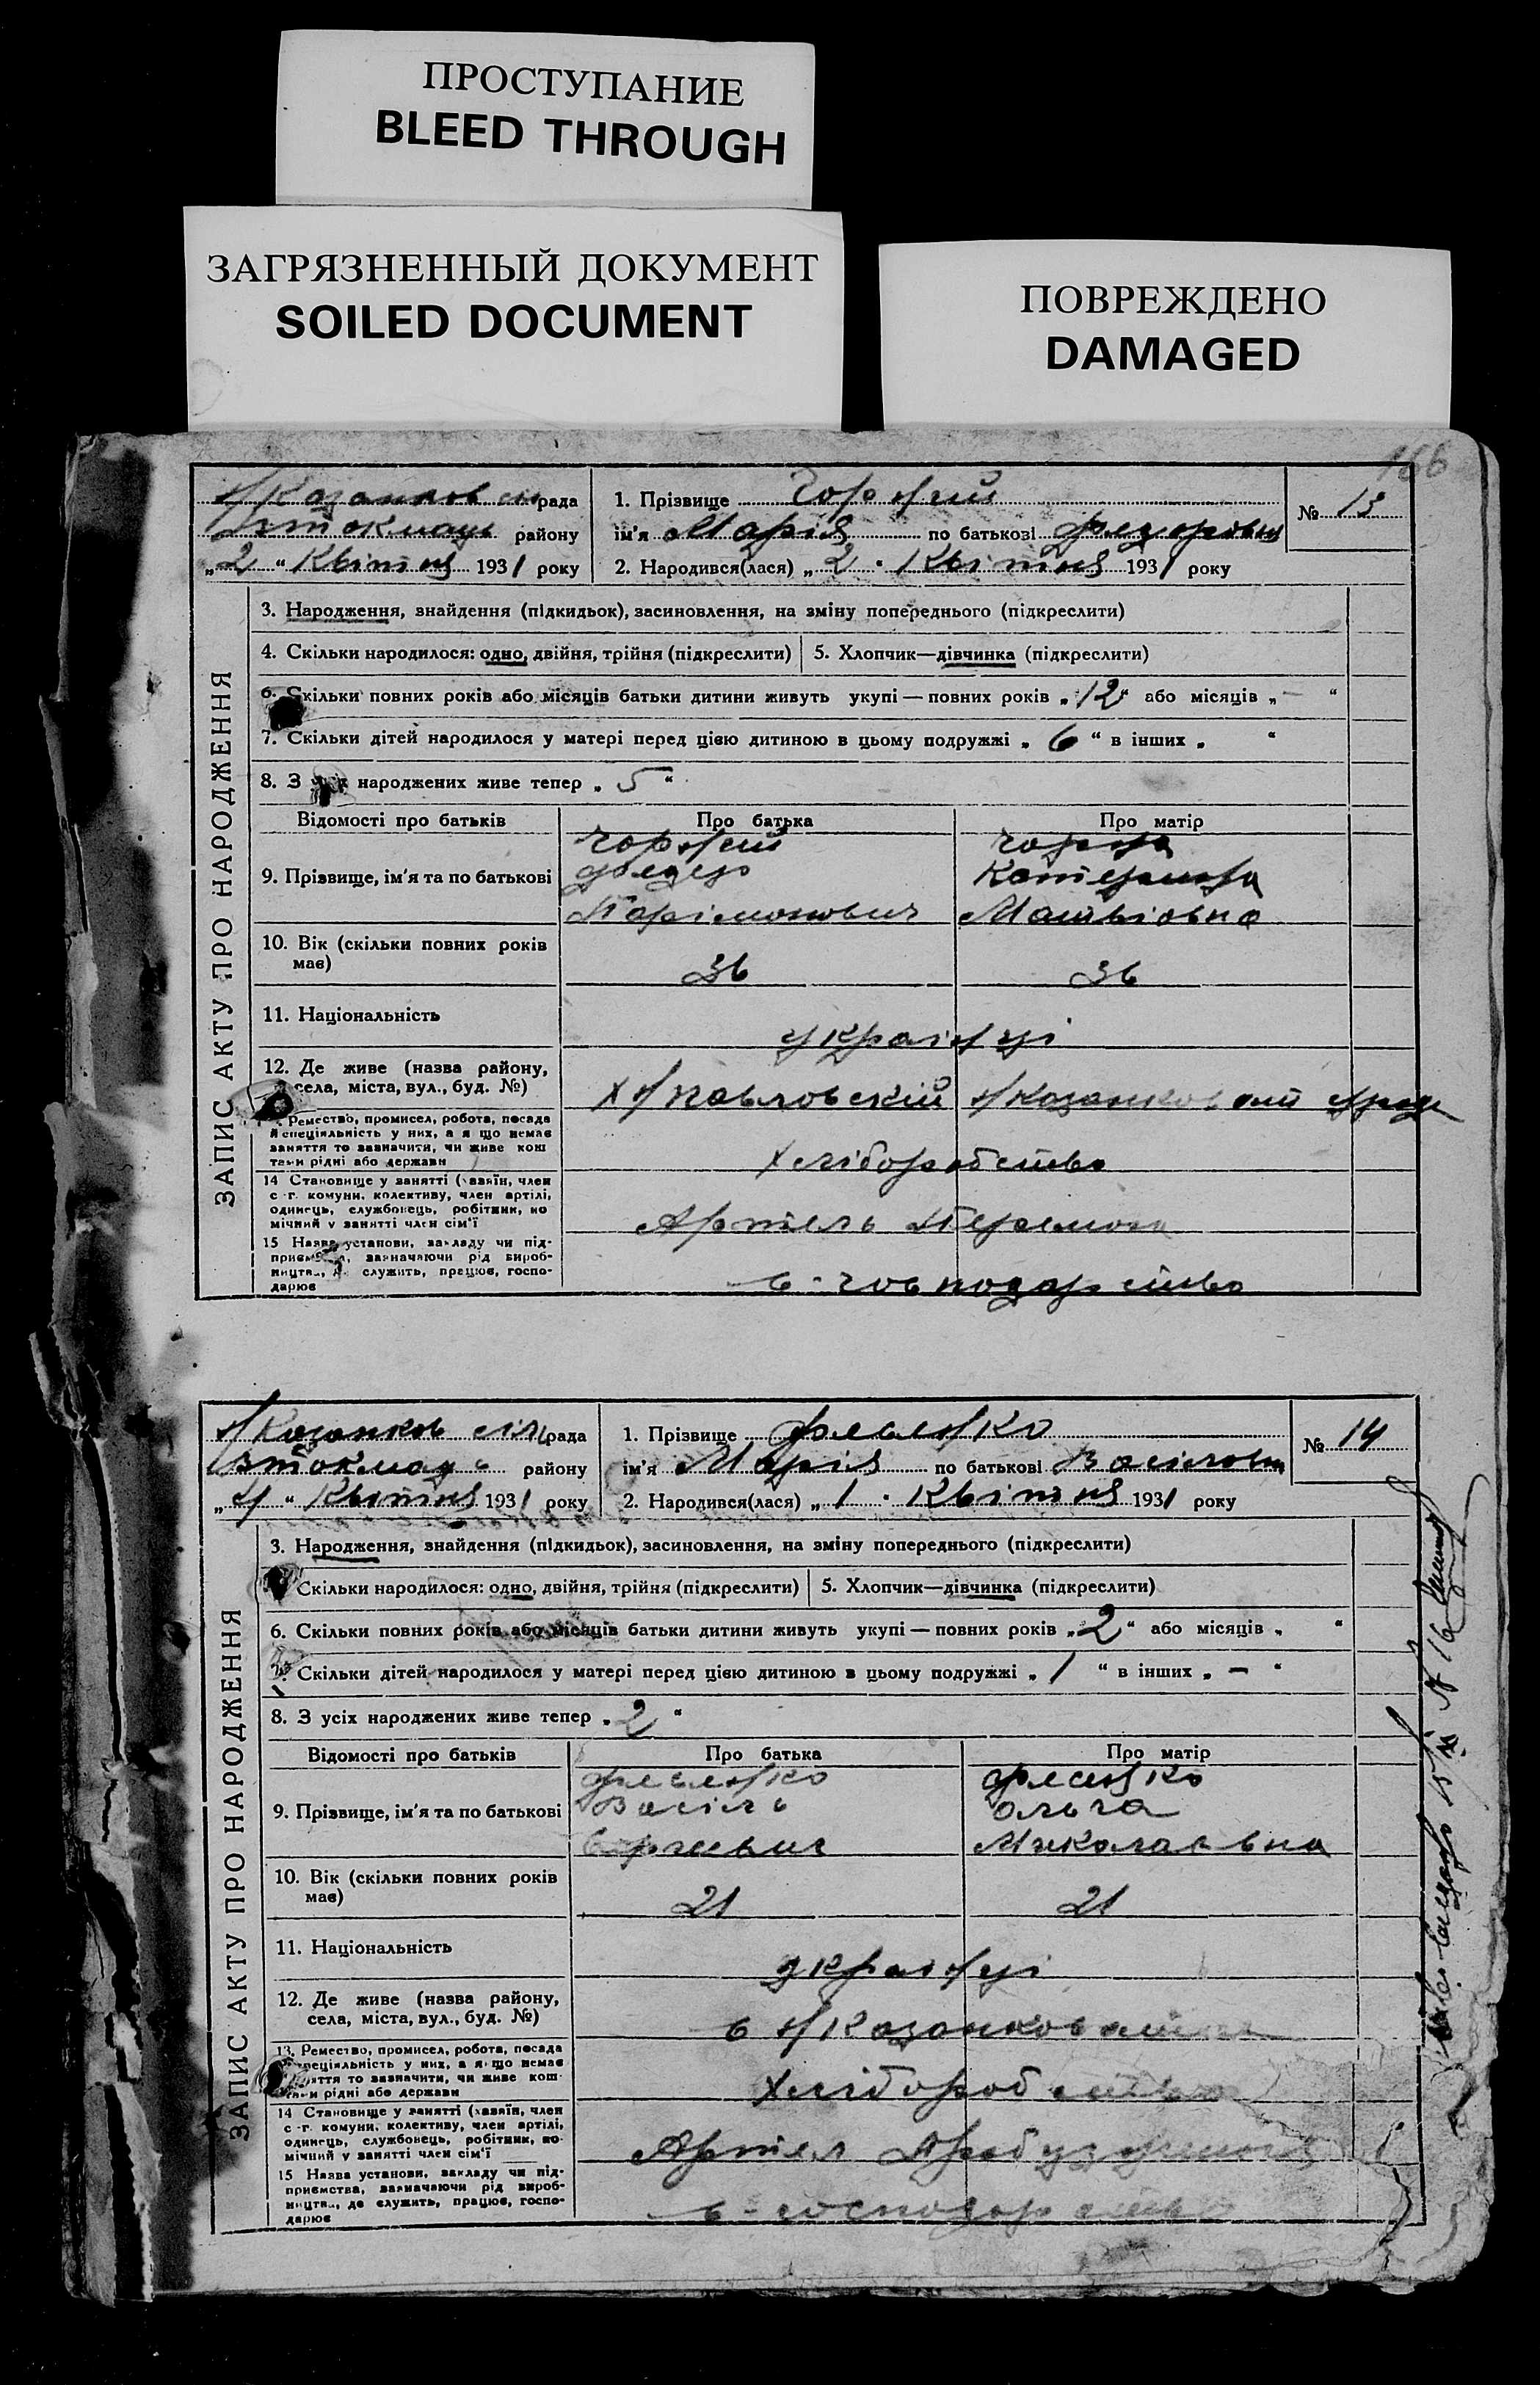 ПРОСТУПАНИЕ
BLEED THROUGH
ЗАГРЯЗНЕННЫЙ ДОКУМЕНТ
SOILED DOCUMENT
ПОВРЕЖДЕНО
DAMAGED
166
ЗАПИС АКТУ ПРО НАРОДЖЕННЯ
рада
району
„2“ Квітня 1931 року
1. Прізвище Чорний
ім'я Марія по батькові Федоровна
№ 13
2. Народився(лася) „2“ Квітня 1931 року
3. Народження, знайдення (підкидьок), засиновлення, на зміну попереднього (підкреслити)
4. Скільки народилося: одно, двійня, трійня (підкреслити) 5. Хлопчик—дівчинка (підкреслити)
6. Скільки повних років або місяців батьки дитини живуть укупі — повних років „12“ або місяців „—“
7. Скільки дітей народилося у матері перед цією дитиною в цьому подружжі „6“ в інших „ “
8. З усіх народжених живе тепер „5“
Відомості про батьків Про батька Про матір
9. Прізвище, ім'я та по батькові
Чорний Чорна
Федір Катерина
Парімонович Матвіовна
10. Вік (скільки повних років має) 36 36
11. Національність українці
12. Де живе (назва району, села, міста, вул., буд. №)
13. Ремество, промисел, робота, посада й спеціяльність у них, а якщо немає заняття то зазначити, чи живе коштами рідні або держави
Хліборобство
14 Становище у занятті (хазяїн, член с.-г. комуни, колективу, член артілі, одинець, службовець, робітник, помічний у занятті член сім'ї
Артель Перемога
15 Назва установи, закладу чи підприємства, зазначаючи рід виробництва, де служить, працює, господарює
ЗАПИС АКТУ ПРО НАРОДЖЕННЯ
рада
району
Квітня 1931 року
1. Прізвище
ім'я Марія по батькові Васіловна
№ 14
2. Народився(лася) „1“ Квітня 1931 року
3. Народження, знайдення (підкидьок), засиновлення, на зміну попереднього (підкреслити)
4. Скільки народилося: одно, двійня, трійня (підкреслити) 5. Хлопчик—дівчинка (підкреслити)
6. Скільки повних років або місяців батьки дитини живуть укупі — повних років „2“ або місяців „ “
7. Скільки дітей народилося у матері перед цією дитиною в цьому подружжі „1“ в інших „—“
8. З усіх народжених живе тепер „2“
Відомості про батьків Про батька Про матір
9. Прізвище, ім'я та по батькові
Васіль Ольга
Миколаевна
10. Вік (скільки повних років має) 21 21
11. Національність українці
12. Де живе (назва району, села, міста, вул., буд. №)
13. Ремество, промисел, робота, посада й спеціяльність у них, а якщо немає заняття то зазначити, чи живе коштами рідні або держави
Хліборобство
14 Становище у занятті (хазяїн, член с.-г. комуни, колективу, член артілі, одинець, службовець, робітник, помічний у занятті член сім'ї
Артел
15 Назва установи, закладу чи підприємства, зазначаючи рід виробництва, де служить, працює, господарює
господарство